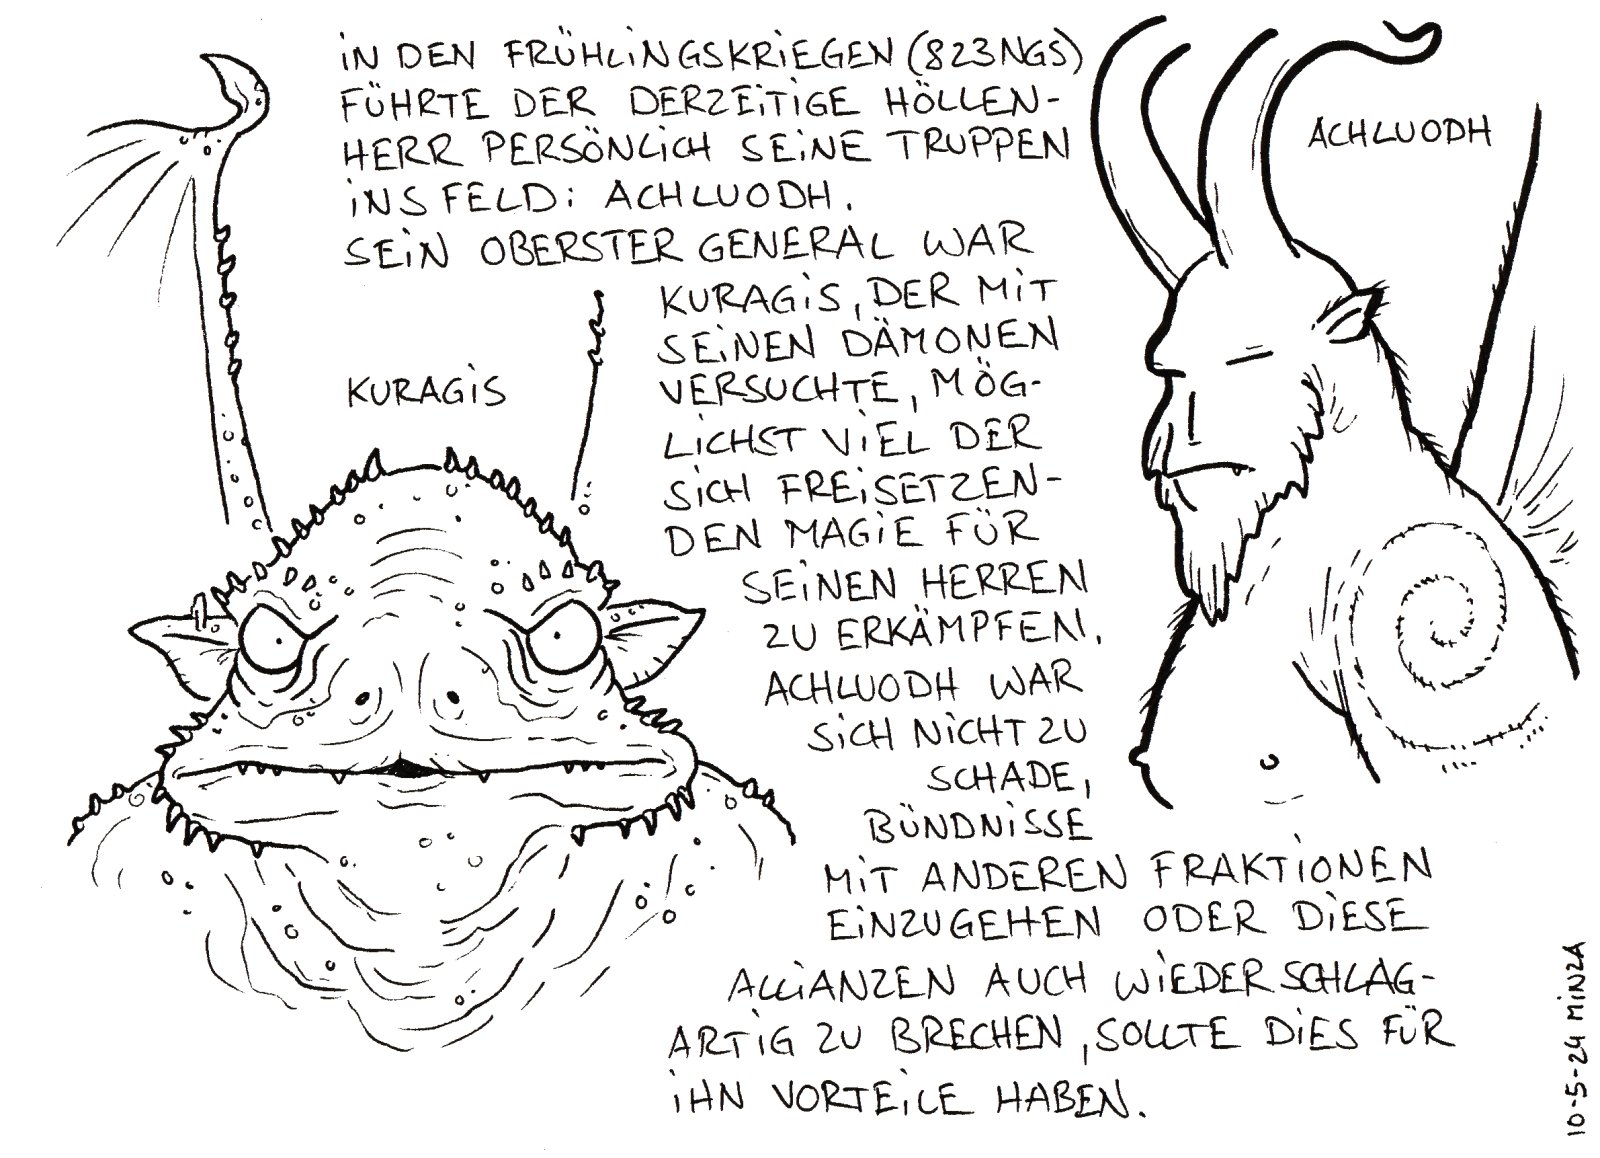 IN DEN FRÜHLINGSKRIEGEN (823NGS)
FÜHRTE DER DERZEITIGE HÖLLEN-
HERR PERSÖNLICH SEINE TRUPPEN
INS FELD: ACHLUODH.
SEIN OBERSTER GENERAL WAR
KURAGIS, DER MIT
SEINEN DÄMONEN
VERSUCHTE, MÖG-
LICHST VIEL DER
SICH FREISETZEN-
DEN MAGIE FÜR
SEINEN HERREN
ZU ERKÄMPFEN.
ACHLUODH WAR
SICH NICHT ZU
SCHADE,
BÜNDNISSE
MIT ANDEREN FRAKTIONEN
EINZUGEHEN ODER DIESE
ALLIANZEN AUCH WIEDER SCHLAG-
ARTIG ZU BRECHEN, SOLLTE DIES FÜR
IHN VORTEILE HABEN.
KURAGIS
ACHLUODH
10-5-24 MINZA